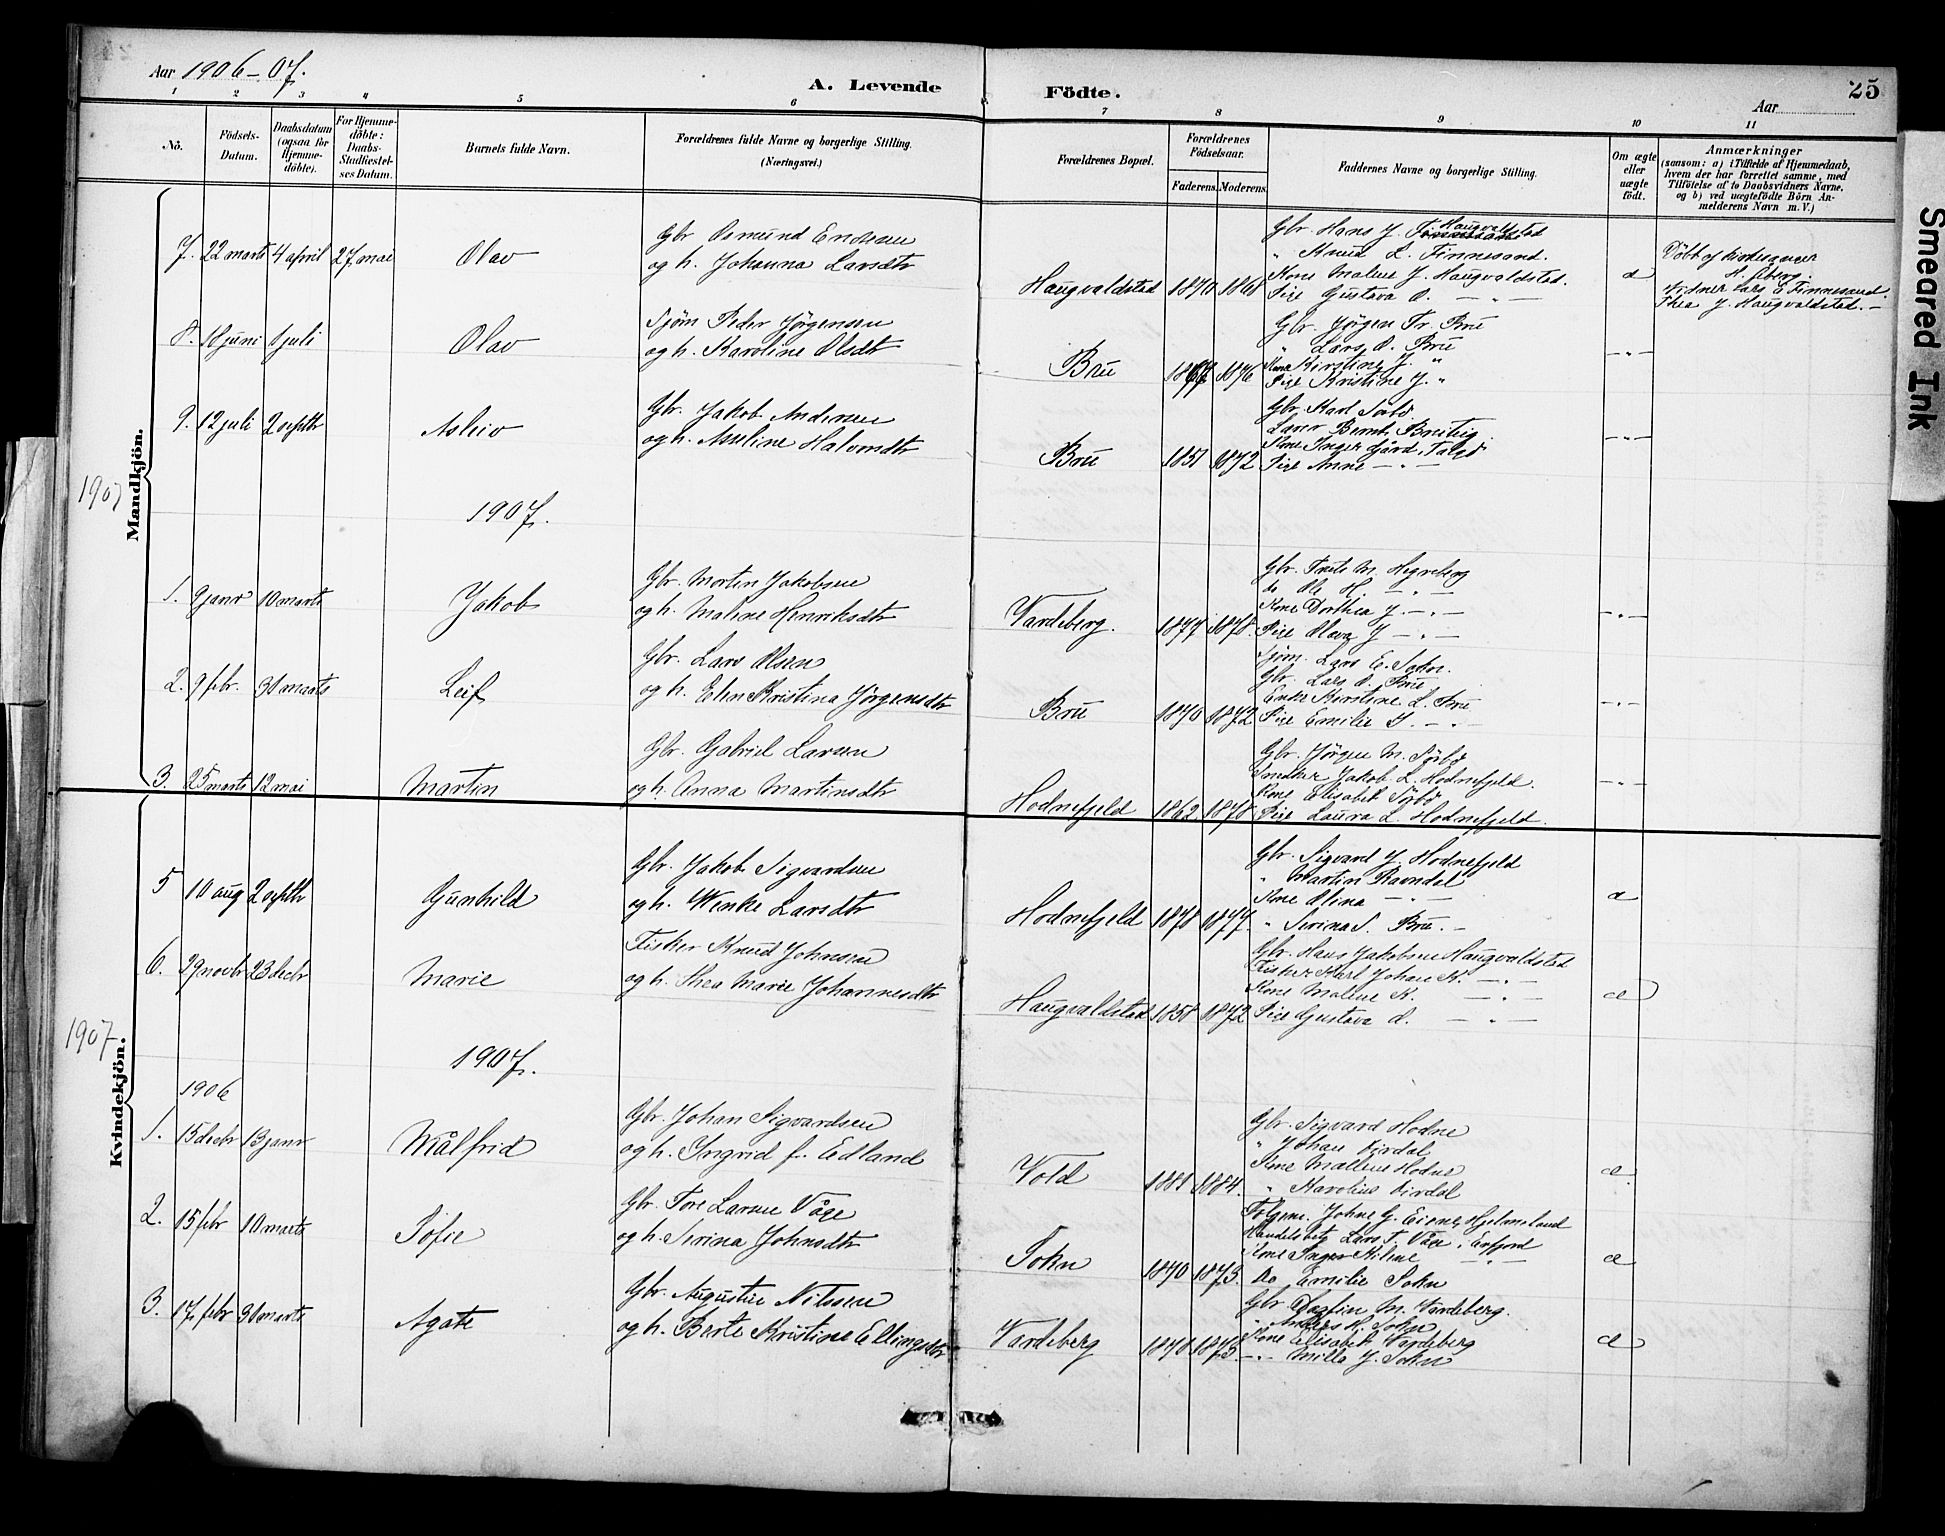 Aar 1906-07.
A. Levende Födte.
Aar
25
1 2 3 4 5 6 7 8 9 10 11
No.
Födsels-Datum.
Daabsdatum (ogsaa for Hjemme-döbte).
For Hjemme-döbte: Daabs-Stadfæstel-ses Datum.
Barnets fulde Navn.
Forældrenes fulde Navne og borgerlige Stilling. (Næringsvei.)
Forældrenes Bopæl.
Forældrenes Födselsaar.
Faderens. Moderens.
Faddernes Navne og borgerlige Stilling.
Om ægte eller uægte födt.
Anmærkninger
(saasom: a) i Tilfælde af Hjemmedaab, hvem der har forrettet samme, med Tilföielse af to Daabsvidners Navne. og b) ved uægtefödte Börn An-melderens Navn m. V.)
Mandkjön.
1907
7. 22 marts 4 april 27 mai Olav
Gbr. Osmund Endresen
og h. Johanna Larsdtr
Haugvaldstad 1870 1868
Gbr. Hans J. Haugvaldstad
" Knud L. Finnesand.
Kone Malene J. Haugvaldstad.
Pige Gustava O. — " —
æ
Döbt af kirkesanger
H. Åberg.
Vidner Lars E Finnesand.
Thea J. Haugvaldstad. —
8. 18 juni 1 juli Olav
Sjöm Peder Jørgensen
og h. Karoline Olsdtr
Bru 1877 1876
Gbr. Jørgen Tr. Bru
" Lars O. Bru
Kone Kirstine J. "
Pige Kristine J. "
— " —
9. 12 juli 2 septbr Asleiv
Gbr. Jakob Andersen
og h. Asseline Halvorsdtr
Bru 1851 1872
Gbr. Karl Sörbö
Lærer Bernh. Bruteig.
Kone Inger Gjård, Talgö
Pige Anne — " —
— " —
1907.
1. 9 janr 10 marts Jakob
Gbr. Morten Jakobsen
og h. Malene Henriksdtr
Vardeberg. 1877 1878.
Gbr. Frets M. Hegreberg
do Ole H. — " —
Kone Dorthea J. — " —
Pige Olava J — " —
— " —
2. 9 febr. 30 marts Leif
Gbr. Lars Olsen
og h. Elen Kristina Jørgensdtr
Bru 1870 1872
Sjöm. Lars E. Sokn.
Gbr. Lars O. Bru
Enke Kirstine L. Bru
Pige Emilie J. — " —
— " —
3. 25 marts 12 mai Martin
Gbr. Gabriel Larsen
og h. Anna Martinsdtr
Hodnefjeld 1862 1878
Gbr. Jørgen M. Sörbö
Snedker Jakob L. Hodnefjeld.
Kone Elisabet Sörbö
Pige Laura L. Hodnefjeld.
— " —
Kvindekjön.
1907
5 10 aug 2 septbr Gunhild
Gbr. Jakob Sigvardsen
og h. Wenke Larsdtr
Hodnefjeld 1878 1877.
Gbr. Sigvard J. Hodnefjeld
" Martin Ravndal
Kone Olina — " —
" Serina S. Bru. —
æ
6. 29 novbr 23 decbr Marie
Fisker Knud Johnsen
og h. Thea Marie Johannesdtr
Haugvaldstad 1858 1872
Gbr. Hans Jakobsen Haugvaldstad
Fisker Karl Johan K. — " —
Kone Malene K. — " —
Pige Gustava O. — " —
æ
1907.
1906
1. 15 decbr 13 janr Målfrid
Gbr. Johan Sigvardsen
og h. Ingrid f. Edland
Vold 1881 1884.
Gbr. Sigvard Hodne
" Johan Dirdal
Kone Mallene Hodne
" Karolius Dirdal
æ
2. 15 febr 10 marts Sofie
Gbr. Tore Larsen Våge
og h. Serina Johnsdtr
Sokn 1870 1873.
Johne G. Eiene, Hjelmeland
Handelsbetj. Lars T. Våge i Erfjord
Kone Inger Milene — " —
Do Emilie Sokn
æ
3. 17 febr 30 marts Agate
Gbr. Augustin Nilssen
og h. Berte Kristine Ellingsdtr
Vardeberg 1870 1873.
Gbr. Dagfin M. Vardeberg.
" Anders H. Sokn
Kone Elisabet Vardeberg
— " — Milla J. Sokn
æ
Smeared Ink